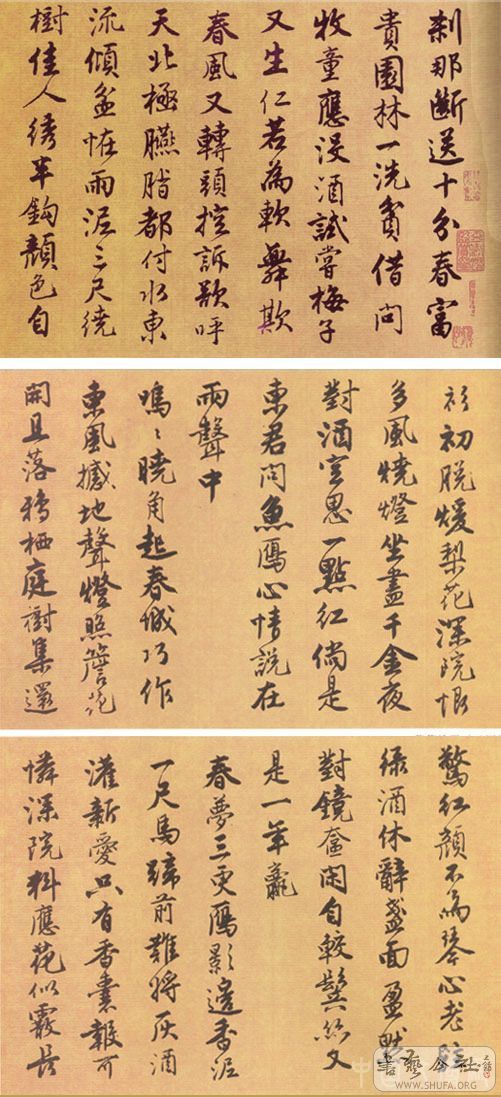 剎那斷送十分春富
貴園林一洗貧借問
牧童應沒酒試嘗梅子
又生仁若為軟舞欺
春風又轉頭控訴欲呼
天北極臙脂都付水東
流傾盆怪雨泥三尺繞
樹佳人繡半鉤顏色自
衫初脫煖梨花深院恨
多風燒燈坐盡千金夜
對酒空思一點紅倘是
東君問魚鴈心情說在
雨聲中
嗚〻曉角起春城巧作
東風撼地聲燈照簷花
開且落鴉栖庭樹集還
驚紅顏不為琴心老
綠酒休辭盞面盈默
對鏡奩閑自較鬢絲又
是一年虧
春夢三更鴈影邊香泥
一尺馬蹄前難將灰酒
灌新愛只有香囊報可
憐深院料應花似霰長
書藝公社
WWW.SHUFA.ORG